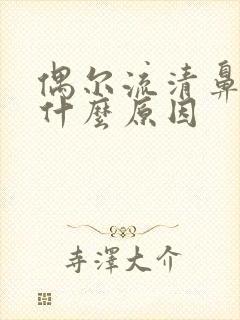 偶尔流清鼻
什麽原因
寺澤大介